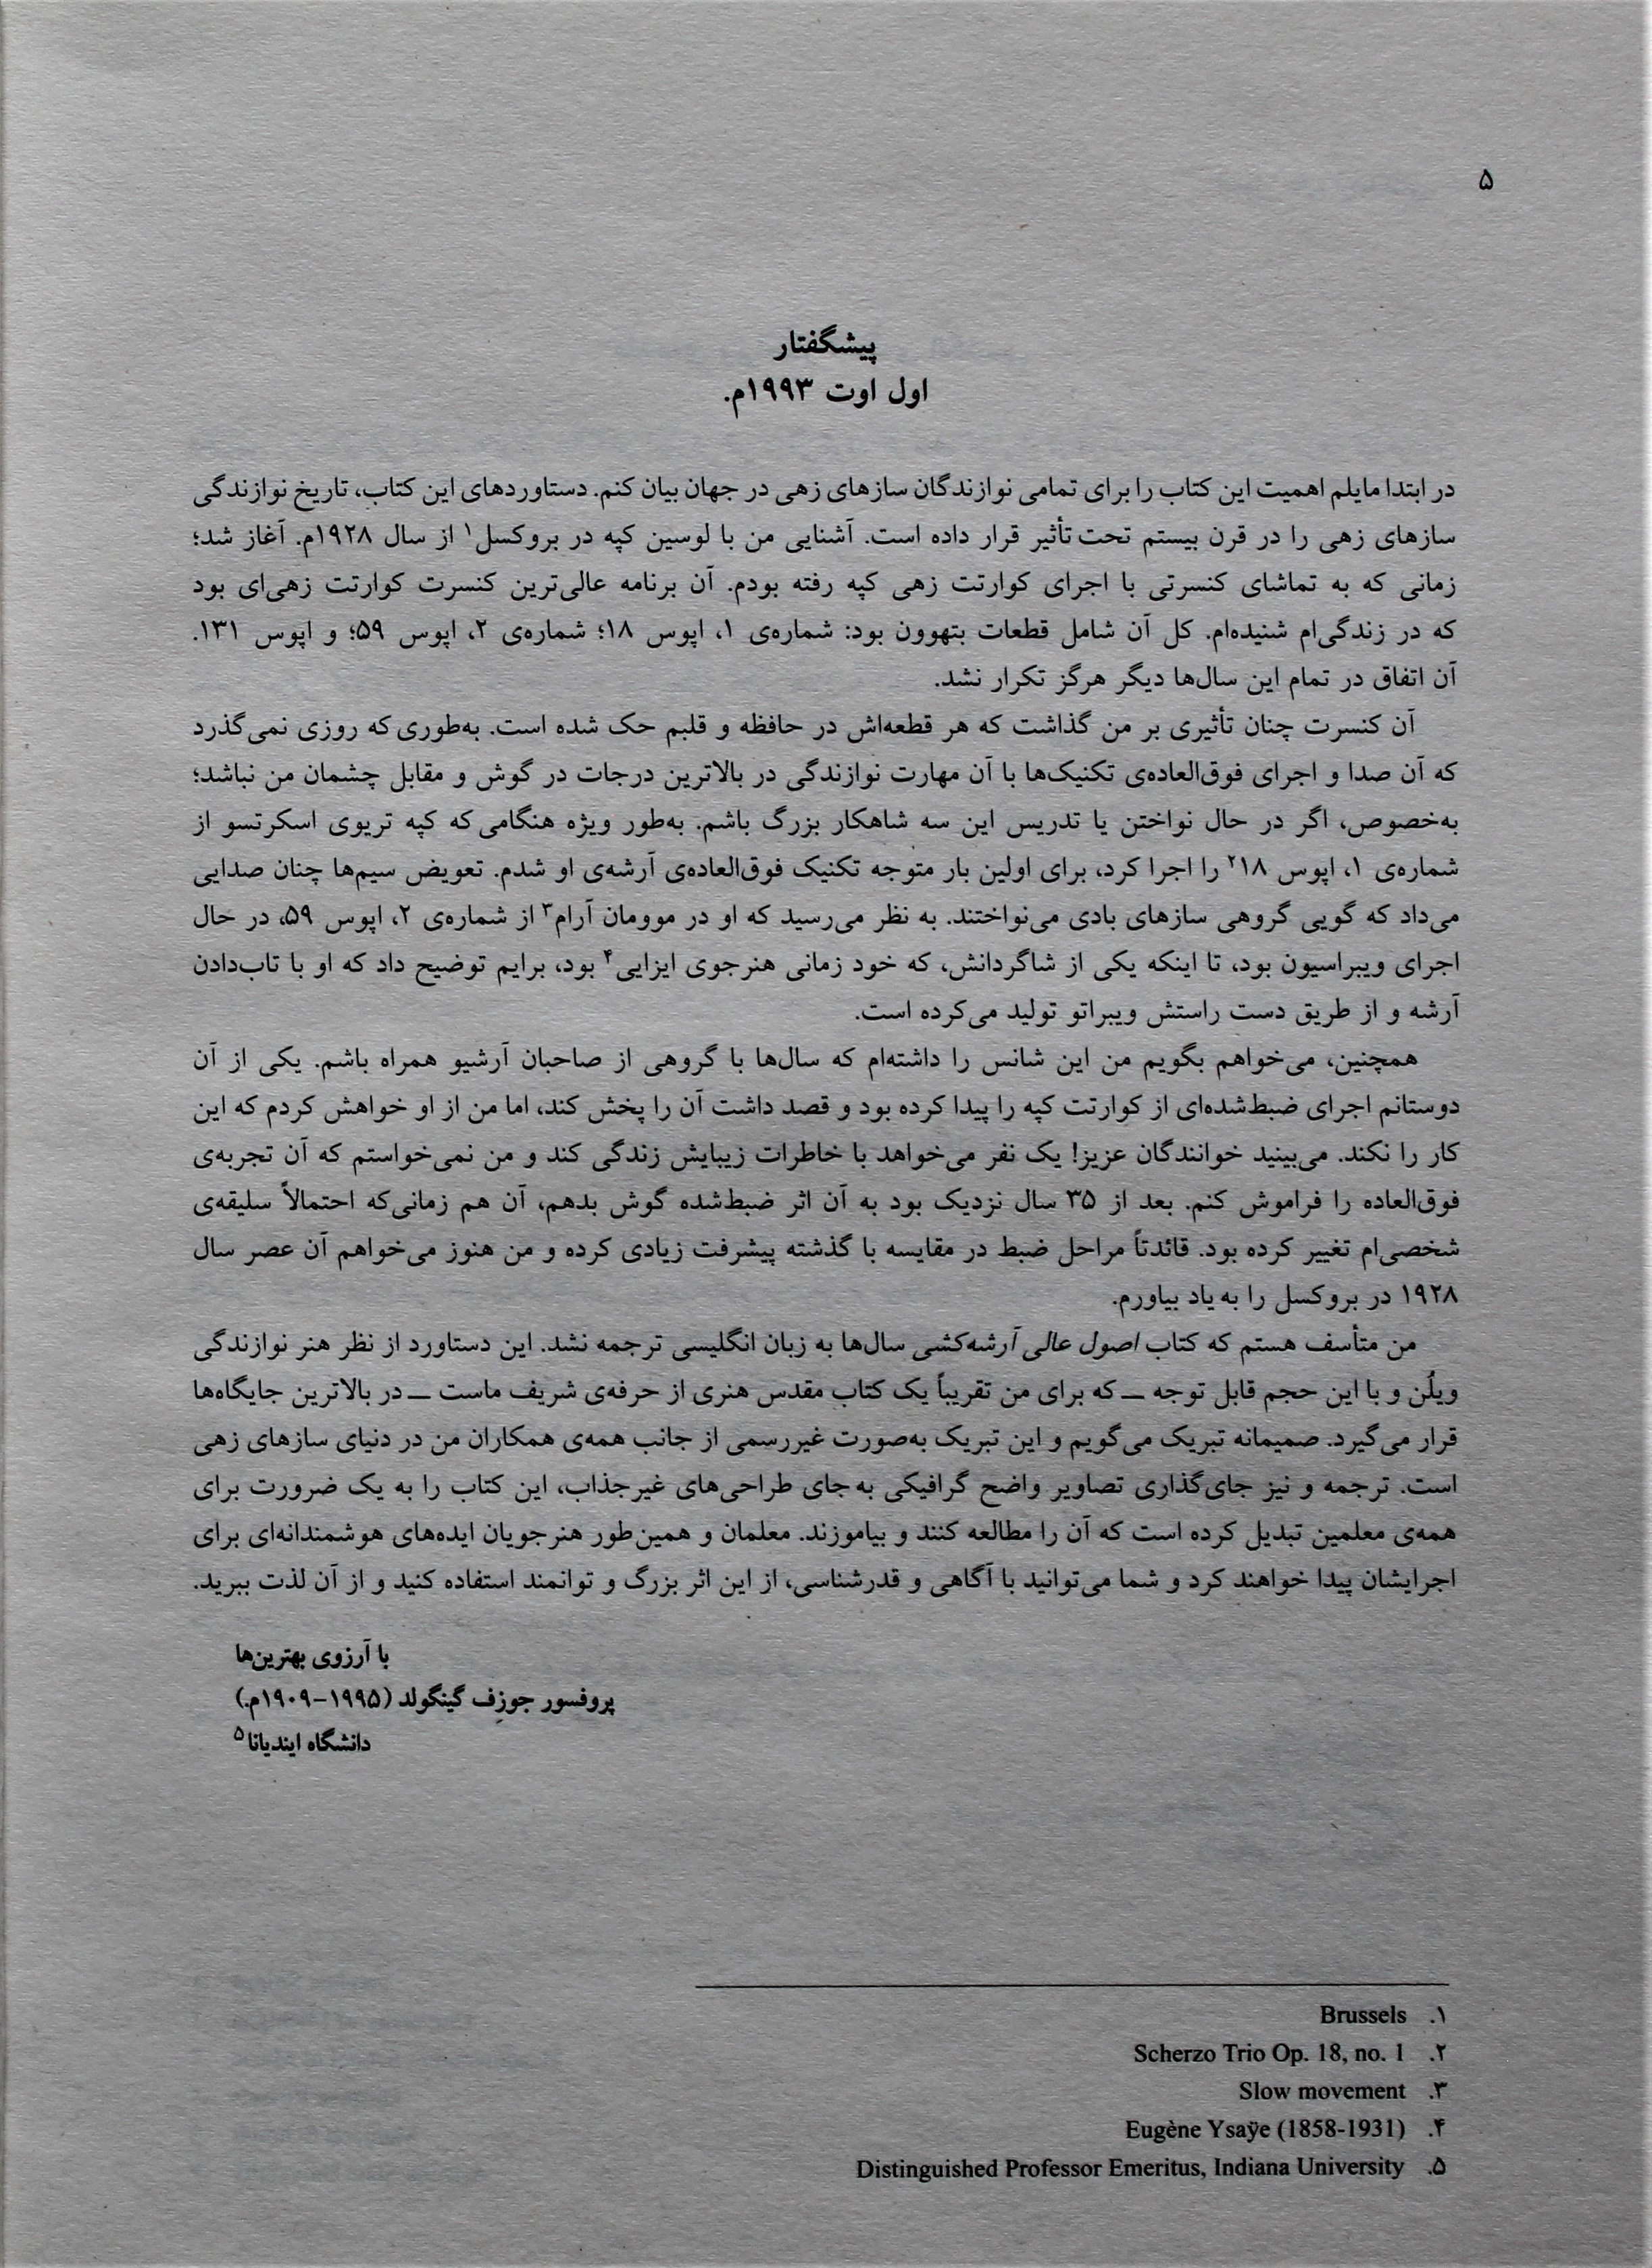 ۵
پیشگفتار
اول اوت ۱۹۹۳م.
در ابتدا مایلم اهمیت این کتاب را برای تمامی نوازندگان سازهای زهی در جهان بیان کنم. دستاوردهای این کتاب، تاریخ نوازندگی
سازهای زهی را در قرن بیستم تحت تأثیر قرار داده است. آشنایی من با لوسین کپه در بروکسل۱ از سال ۱۹۲۸م. آغاز شد؛
زمانی که به تماشای کنسرتی با اجرای کوارتت زهی کپه رفته بودم. آن برنامه عالی‌ترین کنسرت کوارتت زهی‌ای بود
که در زندگی‌ام شنیده‌ام. کل آن شامل قطعات بتهوون بود: شماره‌ی ۱، اپوس ۱۸؛ شماره‌ی ۲، اپوس ۵۹؛ و اپوس ۱۳۱.
آن اتفاق در تمام این سال‌ها دیگر هرگز تکرار نشد.
آن کنسرت چنان تأثیری بر من گذاشت که هر قطعه‌اش در حافظه و قلبم حک شده است. به‌طوری‌که روزی نمی‌گذرد
که آن صدا و اجرای فوق‌العاده‌ی تکنیک‌ها با آن مهارت نوازندگی در بالاترین درجات در گوش و مقابل چشمان من نباشد؛
به‌خصوص، اگر در حال نواختن یا تدریس این سه شاهکار بزرگ باشم. به‌طور ویژه هنگامی‌که کپه تریوی اسکرتسو از
شماره‌ی ۱، اپوس ۱۸۲ را اجرا کرد، برای اولین بار متوجه تکنیک فوق‌العاده‌ی آرشه‌ی او شدم. تعویض سیم‌ها چنان صدایی
می‌داد که گویی گروهی سازهای بادی می‌نواختند. به نظر می‌رسید که او در موومان آرام۳ از شماره‌ی ۲، اپوس ۵۹، در حال
اجرای ویبراسیون بود، تا اینکه یکی از شاگردانش، که خود زمانی هنرجوی ایزایی۴ بود، برایم توضیح داد که او با تاب‌دادن
آرشه و از طریق دست راستش ویبراتو تولید می‌کرده است.
همچنین، می‌خواهم بگویم من این شانس را داشته‌ام که سال‌ها با گروهی از صاحبان آرشیو همراه باشم. یکی از آن
دوستانم اجرای ضبط‌شده‌ای از کوارتت کپه را پیدا کرده بود و قصد داشت آن را پخش کند، اما من از او خواهش کردم که این
کار را نکند. می‌بینید خوانندگان عزیز! یک نفر می‌خواهد با خاطرات زیبایش زندگی کند و من نمی‌خواستم که آن تجربه‌ی
فوق‌العاده را فراموش کنم. بعد از ۳۵ سال نزدیک بود به آن اثر ضبط‌شده گوش بدهم، آن هم زمانی‌که احتمالاً سلیقه‌ی
شخصی‌ام تغییر کرده بود. قائدتاً مراحل ضبط در مقایسه با گذشته پیشرفت زیادی کرده و من هنوز می‌خواهم آن عصر سال
۱۹۲۸ در بروکسل را به یاد بیاورم.
من متأسف هستم که کتاب اصول عالی آرشه‌کشی سال‌ها به زبان انگلیسی ترجمه نشد. این دستاورد از نظر هنر نوازندگی
ویلُن و با این حجم قابل توجه ـــ که برای من تقریباً یک کتاب مقدس هنری از حرفه‌ی شریف ماست ـــ در بالاترین جایگاه‌ها
قرار می‌گیرد. صمیمانه تبریک می‌گویم و این تبریک به‌صورت غیررسمی از جانب همه‌ی همکاران من در دنیای سازهای زهی
است. ترجمه و نیز جای‌گذاری تصاویر واضح گرافیکی به جای طراحی‌های غیرجذاب، این کتاب را به یک ضرورت برای
همه‌ی معلمین تبدیل کرده است که آن را مطالعه کنند و بیاموزند. معلمان و همین‌طور هنرجویان ایده‌های هوشمندانه‌ای برای
اجرایشان پیدا خواهند کرد و شما می‌توانید با آگاهی و قدرشناسی، از این اثر بزرگ و توانمند استفاده کنید و از آن لذت ببرید.
با آرزوی بهترین‌ها
پروفسور جوزِف گینگولد (۱۹۹۵-۱۹۰۹م.)
دانشگاه ایندیانا۵
۱. Brussels
۲. Scherzo Trio Op. 18, no. 1
۳. Slow movement
۴. Eugène Ysaÿe (1858-1931)
۵. Distinguished Professor Emeritus, Indiana University